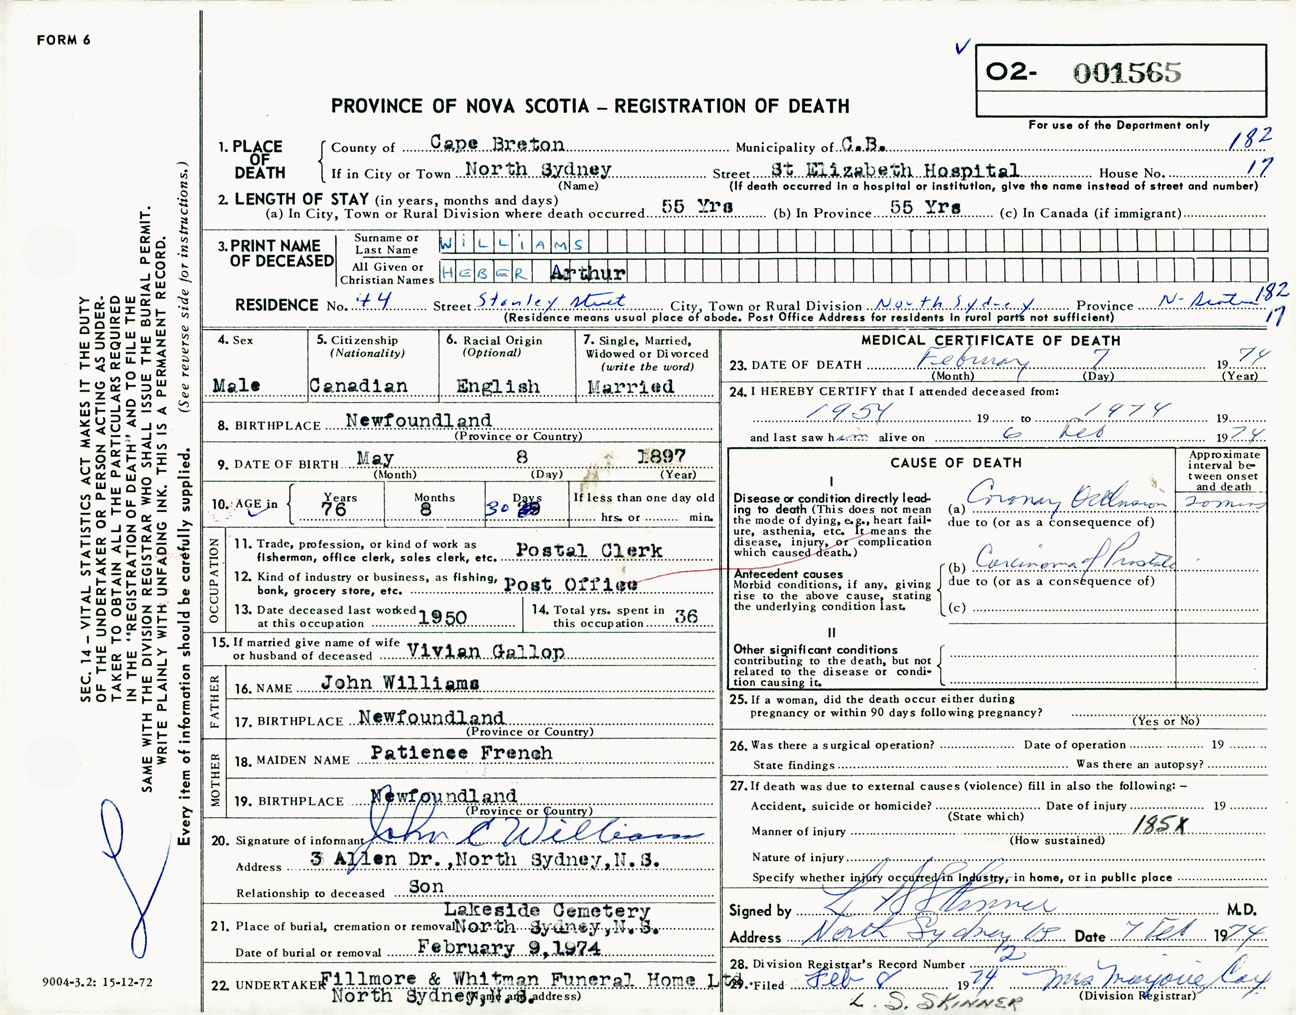 FORM 6
O2- 001565
PROVINCE OF NOVA SCOTIA – REGISTRATION OF DEATH
For use of the Department only
1. PLACE OF DEATH
County of Cape Breton Municipality of C.B. 182
If in City or Town North Sydney Street St Elizabeth Hospital House No. 17
(Name) (If death occurred in a hospital or institution, give the name instead of street and number)
2. LENGTH OF STAY (in years, months and days)
(a) In City, Town or Rural Division where death occurred 55 Yrs (b) In Province 55 Yrs (c) In Canada (if immigrant)
3. PRINT NAME OF DECEASED
Surname or Last Name WiLLiAMS
All Given or Christian Names HEBER Arthur
RESIDENCE No. 44 Street Stanley Street City, Town or Rural Division North Sydney Province N. Scotia 182
(Residence means usual place of abode. Post Office Address for residents in rural parts not sufficient) 17
4. Sex
Male
5. Citizenship
(Nationality)
Canadian
6. Racial Origin
(Optional)
English
7. Single, Married,
Widowed or Divorced
(write the word)
Married
8. BIRTHPLACE Newfoundland
(Province or Country)
9. DATE OF BIRTH May 8 1897
(Month) (Day) (Year)
10. AGE in
Years Months Days If less than one day old
76 8 30 hrs. or min.
OCCUPATION
11. Trade, profession, or kind of work as
fisherman, office clerk, sales clerk, etc. Postal Clerk
12. Kind of industry or business, as fishing,
bank, grocery store, etc. Post Office
13. Date deceased last worked
at this occupation 1950
14. Total yrs. spent in
this occupation 36
15. If married give name of wife
or husband of deceased Vivian Gallop
FATHER
16. NAME John Williams
17. BIRTHPLACE Newfoundland
(Province or Country)
MOTHER
18. MAIDEN NAME Patience French
19. BIRTHPLACE Newfoundland
(Province or Country)
20. Signature of informant John C Williams
Address 3 Allen Dr.,North Sydney,N.S.
Relationship to deceased Son
Lakeside Cemetery
21. Place of burial, cremation or removal North Sydney,N.S.
Date of burial or removal February 9,1974
22. UNDERTAKER Fillmore & Whitman Funeral Home Ltd.
North Sydney,N.S.
(Name and address)
MEDICAL CERTIFICATE OF DEATH
23. DATE OF DEATH February 7 1974
(Month) (Day) (Year)
24. I HEREBY CERTIFY that I attended deceased from:
1954 19 to 1974 19
and last saw him alive on 6 Feb 1974
CAUSE OF DEATH
Approximate
interval be-
tween onset
and death
I
Disease or condition directly lead-
ing to death (This does not mean
the mode of dying, e.g., heart fail-
ure, asthenia, etc. It means the
disease, injury, or complication
which caused death.)
(a) Coronary Occlusion 20 mins
due to (or as a consequence of)
Antecedent causes
Morbid conditions, if any, giving
rise to the above cause, stating
the underlying condition last.
(b) Carcinoma of Prostate
due to (or as a consequence of)
(c)
II
Other significant conditions
contributing to the death, but not
related to the disease or condi-
tion causing it.
25. If a woman, did the death occur either during
pregnancy or within 90 days following pregnancy?
(Yes or No)
26. Was there a surgical operation? Date of operation 19
State findings Was there an autopsy?
27. If death was due to external causes (violence) fill in also the following: –
Accident, suicide or homicide? Date of injury 19
(State which)
Manner of injury 185X
(How sustained)
Nature of injury
Specify whether injury occurred in Industry, in home, or in public place
Signed by L S Skinner M.D.
Address North Sydney NS Date 7 Feb 1974
28. Division Registrar's Record Number 2
29. Filed Feb 8 1974 Mrs Marjorie Cox
(Division Registrar)
L. S. SKINNER
SEC. 14 – VITAL STATISTICS ACT MAKES IT THE DUTY
OF THE UNDERTAKER OR PERSON ACTING AS UNDER-
TAKER TO OBTAIN ALL THE PARTICULARS REQUIRED
IN THE "REGISTRATION OF DEATH" AND TO FILE THE
SAME WITH THE DIVISION REGISTRAR WHO SHALL ISSUE THE BURIAL PERMIT.
WRITE PLAINLY WITH UNFADING INK. THIS IS A PERMANENT RECORD.
Every item of information should be carefully supplied. (See reverse side for instructions.)
9004-3.2: 15-12-72